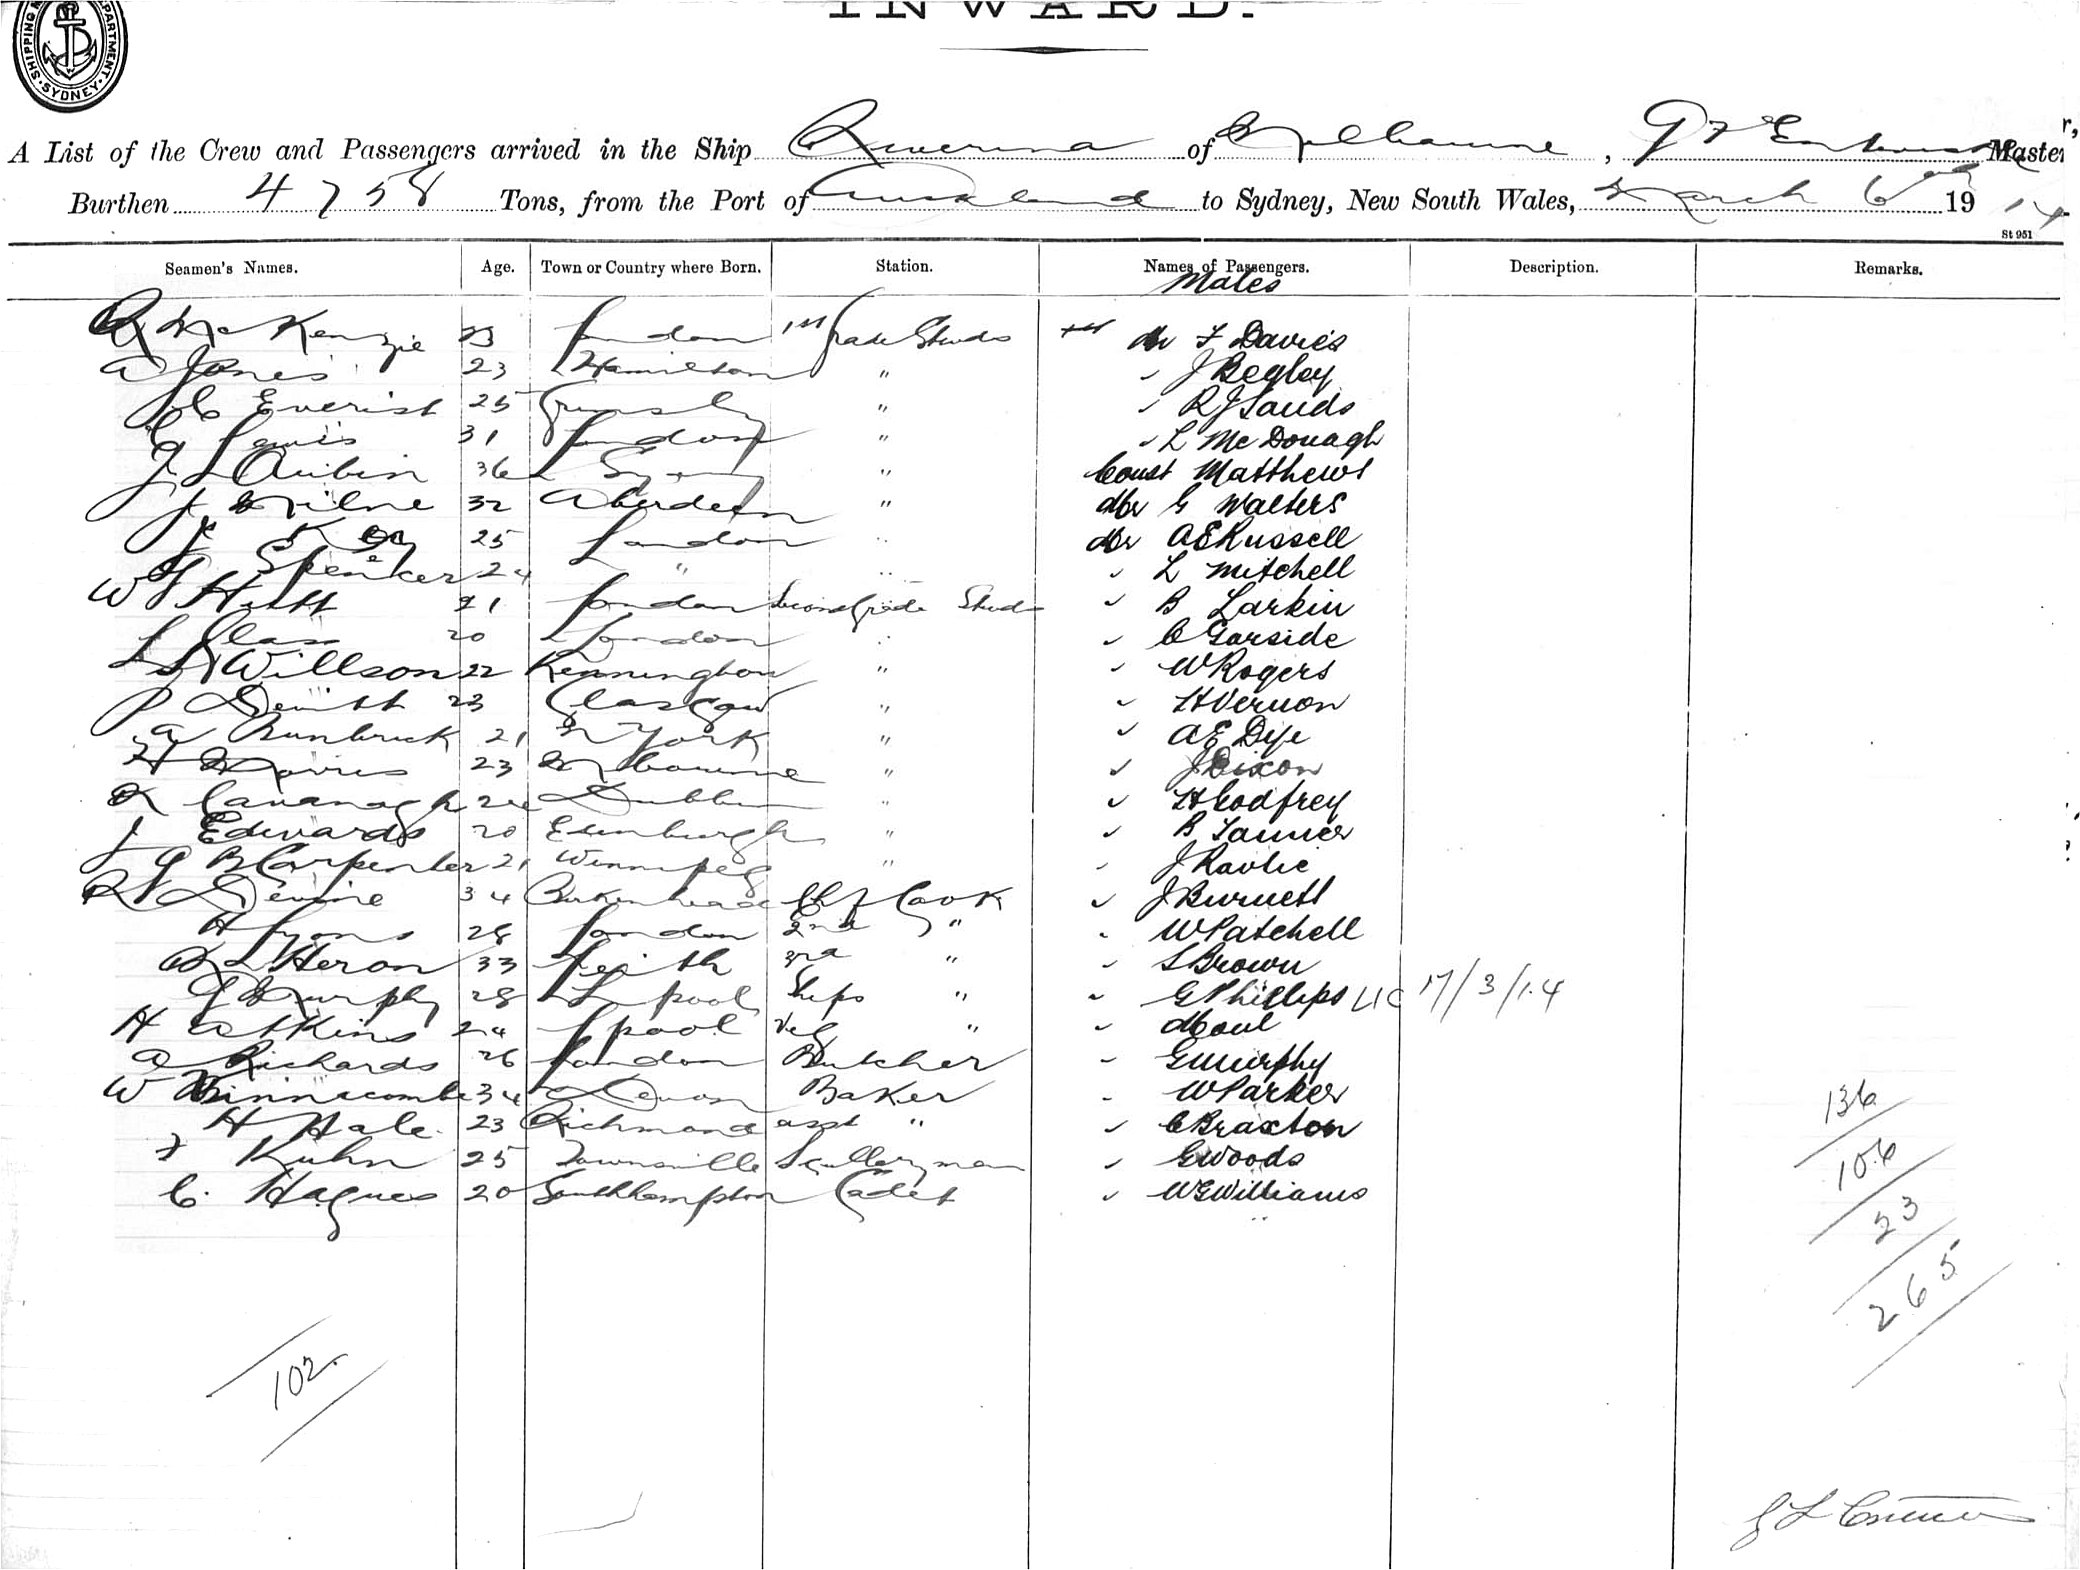 SHIPPING DEPARTMENT SYDNEY
INWARD.
A List of the Crew and Passengers arrived in the Ship Riverina of Melbourne, Master,
Burthen 4758 Tons, from the Port of Auckland to Sydney, New South Wales, March 6 1914
St 951
Seamen's Names. Age. Town or Country where Born. Station. Names of Passengers. Description. Remarks.
Males
McKenzie 23 London 1st Grade Stwds 1st Mr F Davies
A Jones 23 Hamilton " " J Begley
Everist 25 Grimsby " " R J Sands
Lewis 31 London " " L McDonagh
J L Aubin 36 " Const Matthews
J Milne 32 Aberdeen " Mr G Walters
J Key 25 London " Mr A E Russell
Spenker 24 " " " L Mitchell
W Hutt 21 London Second Grade Stwds " B Larkin
L Glass 20 London " " C Garside
Willson 22 Kennington " " W Rogers
P Smith 23 Glasgow " " H Vernon
A Bunbrick 21 N York " " A E Dye
H Morris 23 Melbourne " " J Dixon
Cavanagh 24 Dublin " " H Godfrey
J Edwards 20 Edinburgh " " B Tanner
G B Carpenter 21 Winnipeg " " J Ravlic
Devine 34 Birkenhead Chf Cook " J Burnett
H Lyons 28 London 2nd " " W Patchell
Heron 33 Leith 3rd " " S Brown
J Murphy 28 L pool Ships " " G Phillips 17/3/14
H Atkins 24 L pool Veg " "
A Richards 26 London Butcher " G Murphy
W Hinnecombe 34 Devon Baker " W Parker
H Hale 23 Richmond asst " " C Braxton
F Kuhn 25 Townsville Sculleryman " G Woods
C. Hagues 20 Southhampton Cadet " W G Williams
136
106
23
265
102